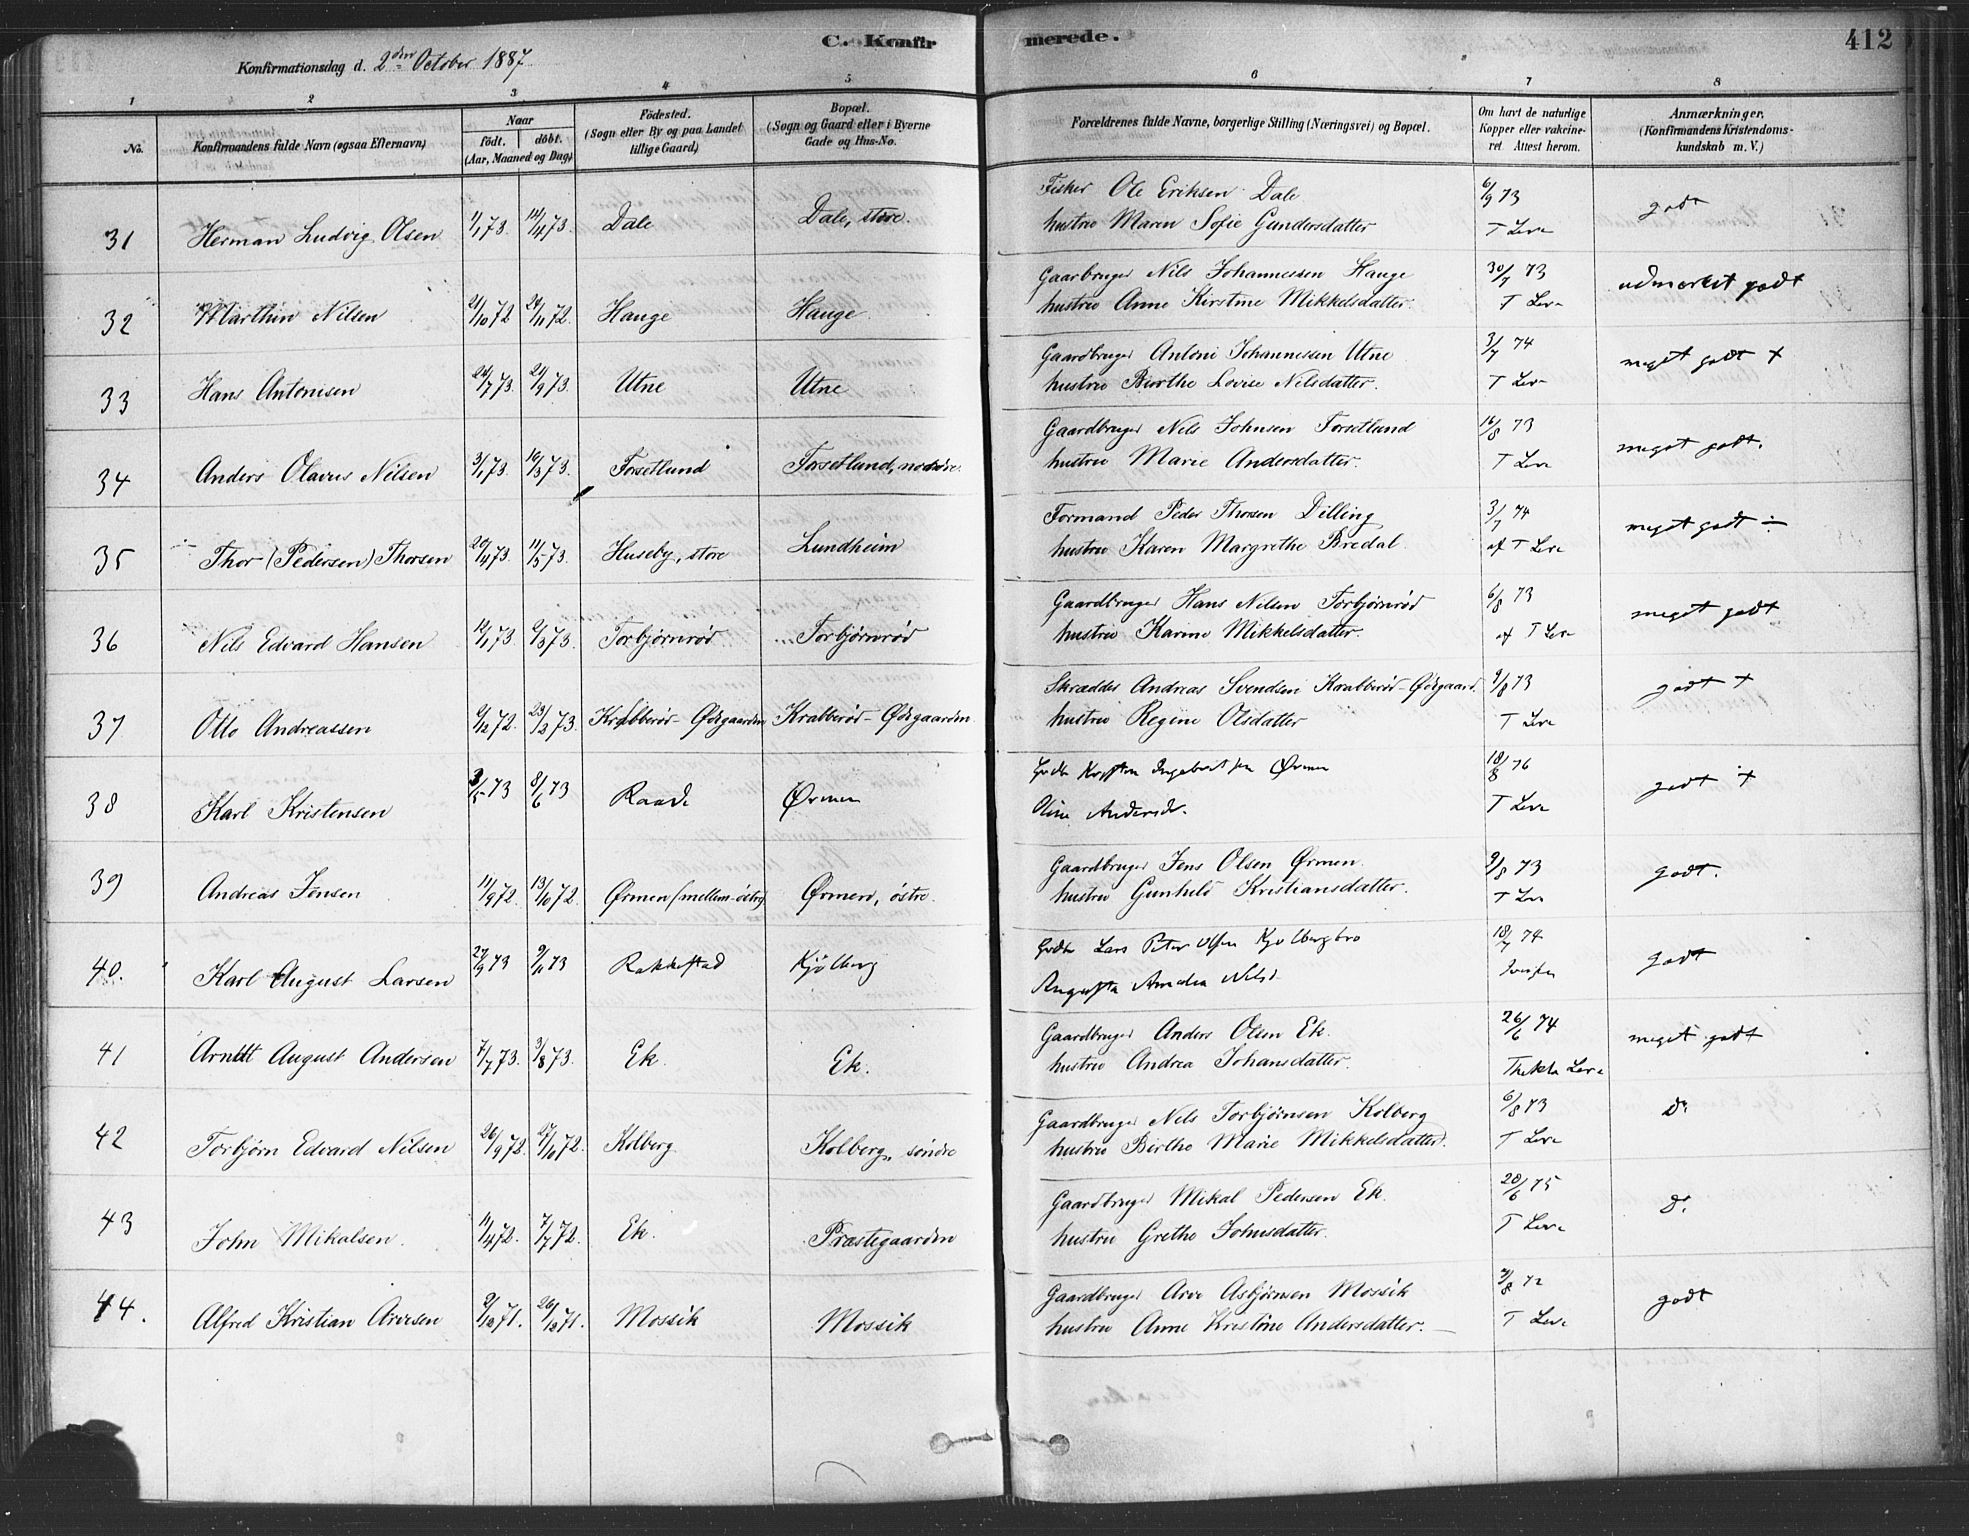 C. Konfirmerede.
412
Konfirmationsdag d. 2den October 1887.
1 2 3 4 5 6 7 8
No.
Konfirmandens fulde Navn (ogsaa Efternavn)
Naar
født. døbt.
(Aar, Maaned og Dag)
Fødested.
(Sogn eller By og paa Landet
tillige Gaard)
Bopæl.
(Sogn og Gaard eller i Byerne
Gade og Hus-No.
Forældrenes fulde Navne, borgerlige Stilling (Næringsvei) og Bopæl.
Om havt de naturlige
Kopper eller vakcine-
ret Attest herom.
Anmærkninger.
(Konfirmandens Kristendoms-
kundskab m. V.)
31 Herman Ludvig Olsen 1/1 73. 14/4 73. Dale Dale, store.
Fisker Ole Eriksen Dale 6/9 73
hustru Maren Sofie Gundersdatter T Leve godt
32 Marthin Nilsen 21/10 72 24/11 72. Hauge Hauge.
Gaarbruger Nils Johannessen Hauge 30/7 73
hustru Anne Kirstine Mikkelsdatter. T Leve udmærket godt
33 Hans Antonisen 24/7 73. 21/9 73. Utne Utne
Gaardbruger Antoni Johannessen Utne 3/7 74
hustru Berthe Lovise Nilsdatter. T Leve meget godt +
34 Anders Olavus Nilsen 3/1 73. 19/3 73. Torsetlund Torsetlund, nordre
Gaardbruger Nils Johnsen Torsetlund 16/8 73
hustru Marie Andersdatter. T Leve meget godt.
35 Thor (Pedersen) Thorsen 20/4 73. 11/5 73. Huseby, store Lundheim
Formand Peder Thorsen Dilling 3/7 74
hustru Karen Margrethe Bredal af T Leve meget godt ÷
36 Nils Edvard Hansen 14/1 73. 2/3 73. Torbjørnrød Torbjørnrød
Gaardbruger Hans Nilsen Torbjørnrød 6/8 73
hustru Karine Mikkelsdatter. af T Leve meget godt
37 Otto Andreassen 9/12 72. 23/2 73. Krabberød-Ødegaarden Krabberød-Ødegaarden
Skrædder Andreas Svendsen Krabberød-Ødegaard. 9/8 73
hustru Regine Olsdatter T Leve godt +
38 Karl Kristensen 3/5 73 8/6 73 Raade Ørmen
Ørmen 18/8 76
Oline Andersd. T Leve godt +
39 Andreas Jensen 11/9 72. 13/10 72. Ørmen (mellem-østre) Ørmen, østre.
Gaardbruger Jens Olsen Ørmen. 9/8 73
hustru Gunhild Kristiansdatter. T Leve godt.
40. Karl August Larsen 27/9 73 9/11 73 Rakkestad Kjølberg
Lars Peter Olsen Kjølbergbro 18/7 74
Augusta Amalia Nilsd. godt
41 Arndt August Andersen 7/7 73. 3/8 73. Ek. Ek.
Gaardbruger Anders Olsen Ek. 26/6 74
hustru Andrea Johansdatter. Thekla Leve meget godt
42 Torbjørn Edvard Nilsen 26/9 72. 27/10 72. Kolberg Kolberg, søndre
Gaardbruger Nils Torbjørnsen Kolberg 6/8 73
hustru Birthe Marie Mikkelsdatter. T Leve Do
43 John Mikalsen. 11/4 72. 7/7 72. Ek. Præstegaarden
Gaardbruger Mikal Pedersen Ek. 20/6 75
hustru Grethe Johnsdatter. T Leve Do
44. Alfred Kristian Arvesen 2/12 71. 26/12 71. Mossik Mossik
Gaardbruger Arve Asbjørnsen Mossik 7/8 72
hustru Anne Kristine Andersdatter. T Leve godt